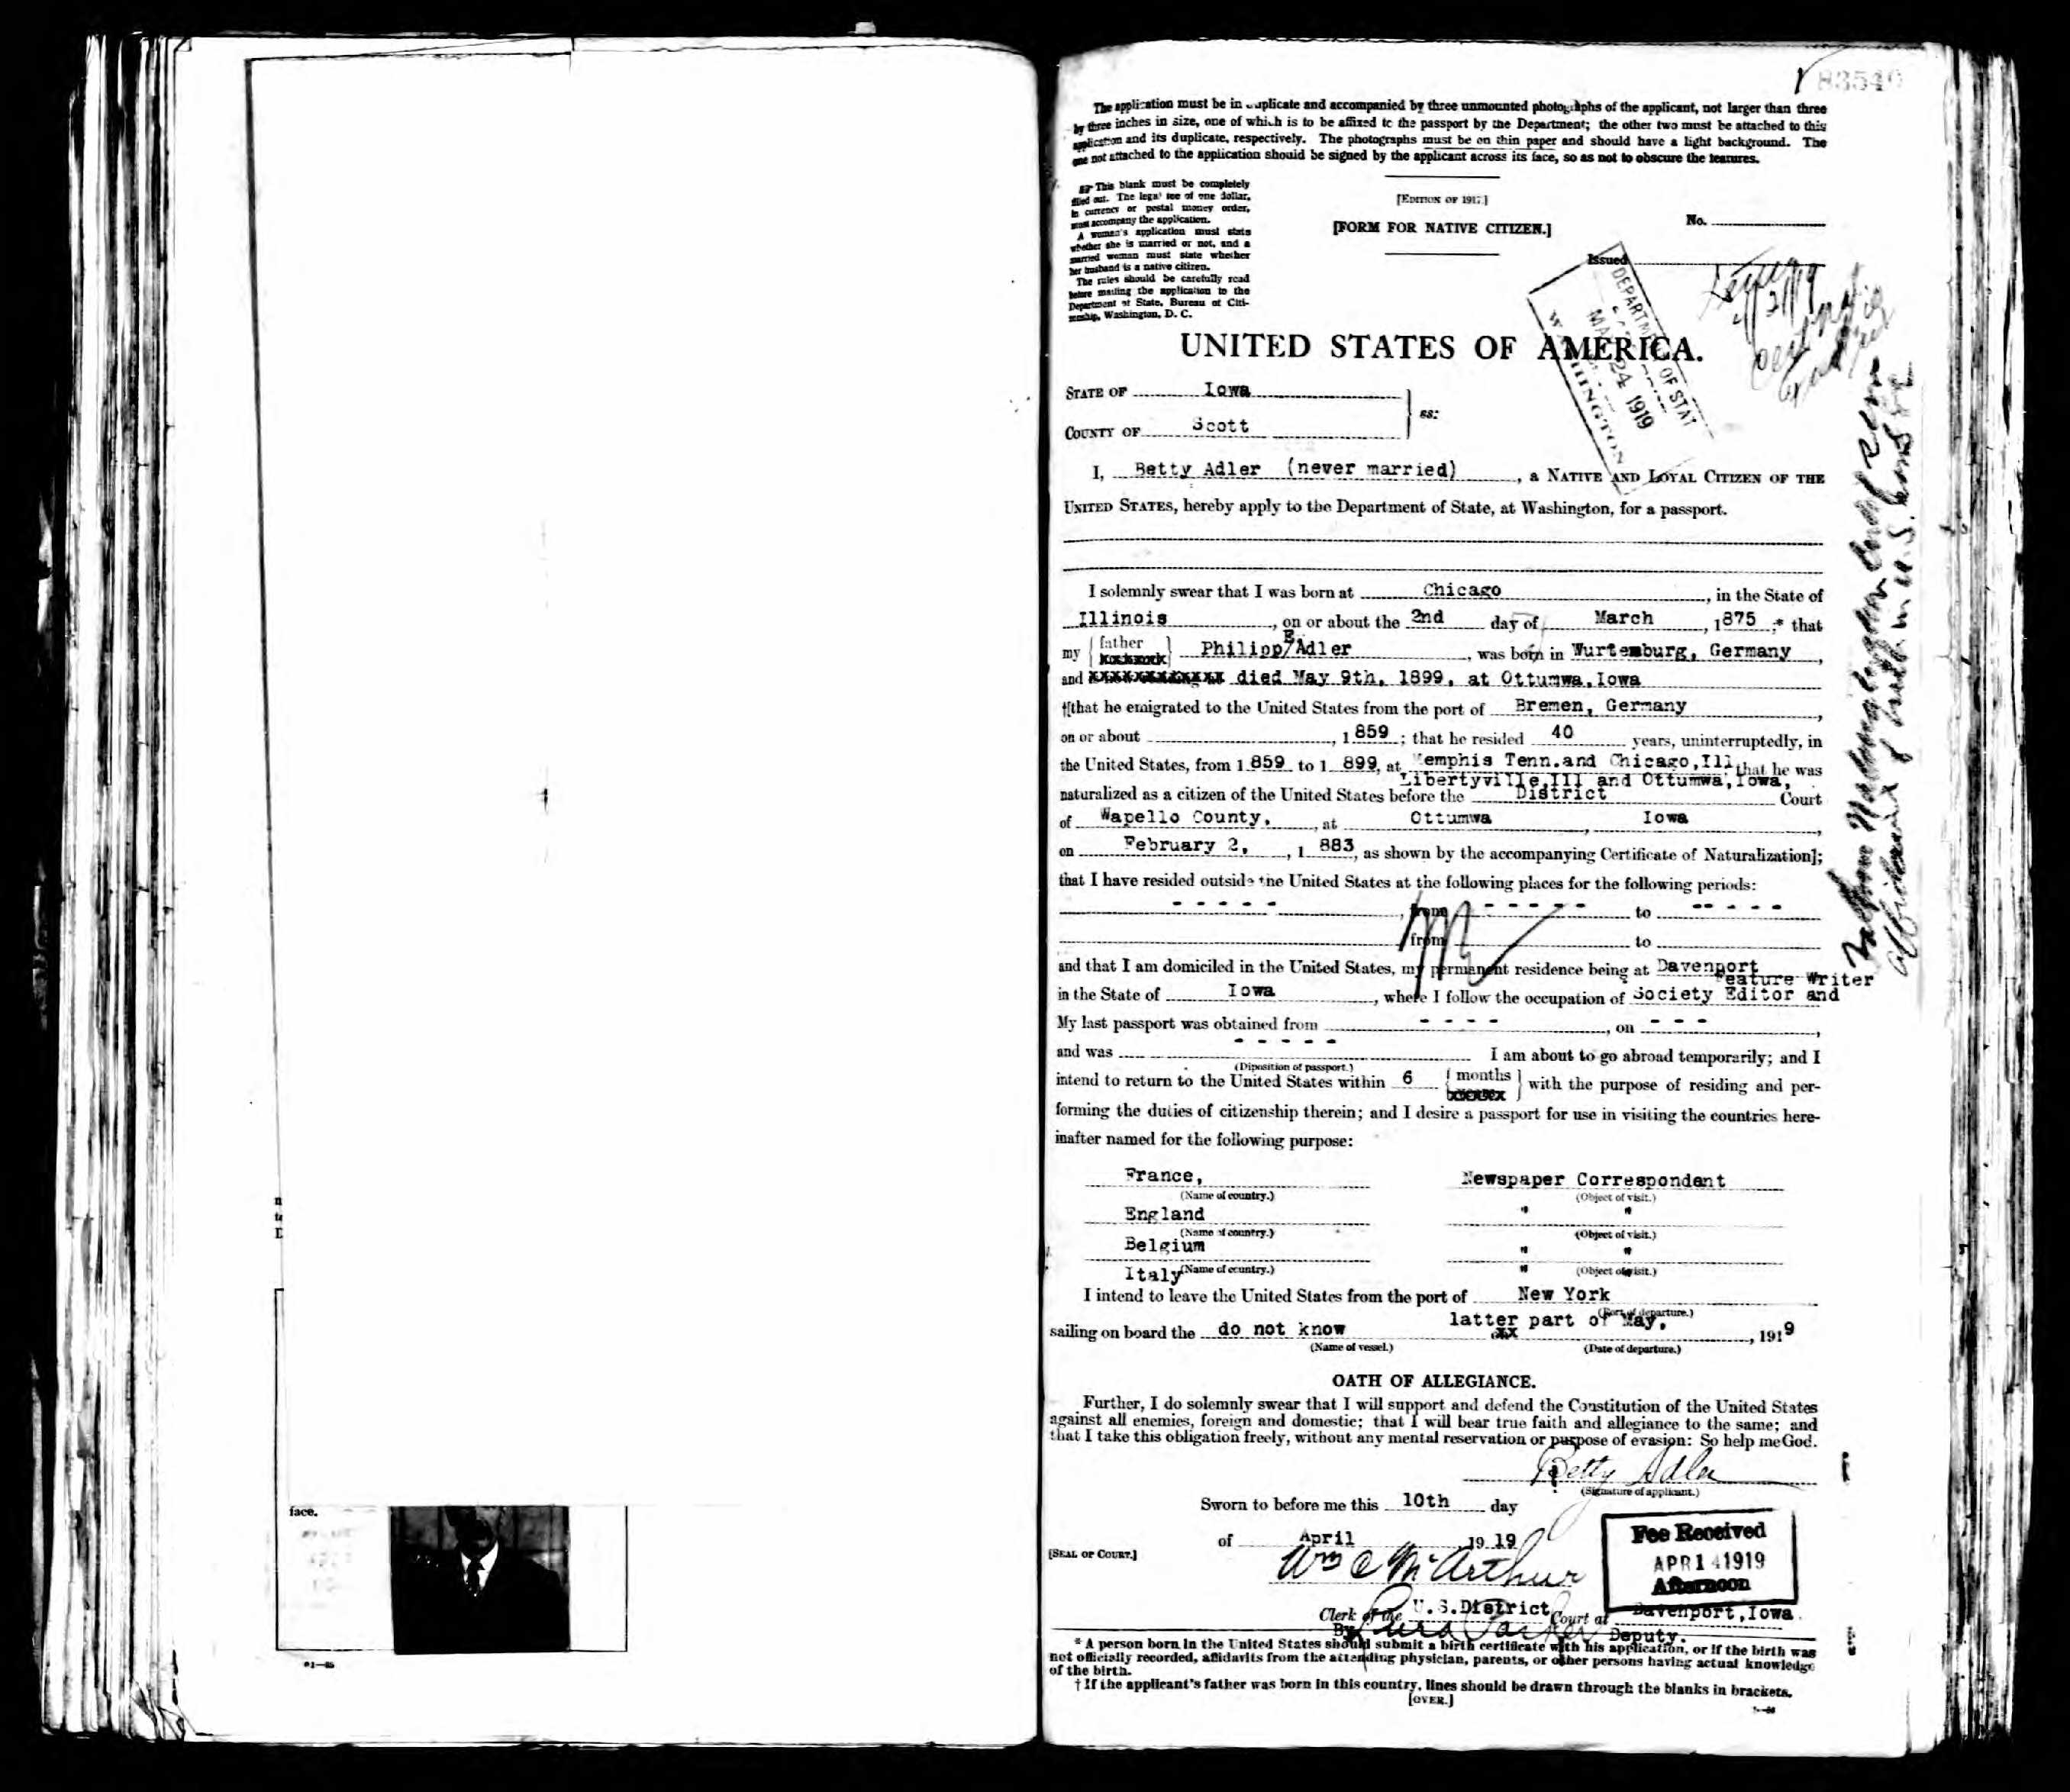 face.
83540
The application must be in duplicate and accompanied by three unmounted photographs of the applicant, not larger than three
by three inches in size, one of which is to be affixed to the passport by the Department; the other two must be attached to this
application and its duplicate, respectively. The photographs must be on thin paper and should have a light background. The
one not attached to the application should be signed by the applicant across its face, so as not to obscure the features.
This blank must be completely
filled out. The legal fee of one dollar,
in currency or postal money order,
must accompany the application.
A woman's application must state
whether she is married or not, and a
married woman must state whether
her husband is a native citizen.
The rules should be carefully read
before mailing the application to the
Department of State, Bureau of Citi-
zenship, Washington, D. C.
[EDITION OF 1917.]
[FORM FOR NATIVE CITIZEN.]
No.
Issued
DEPARTMENT OF STATE
24 1919
WASHINGTON
UNITED STATES OF AMERICA.
STATE OF Iowa
COUNTY OF Scott
ss:
I, Betty Adler (never married), a NATIVE AND LOYAL CITIZEN OF THE
UNITED STATES, hereby apply to the Department of State, at Washington, for a passport.
I solemnly swear that I was born at Chicago, in the State of
Illinois, on or about the 2nd day of March, 1875;* that
my father Philipp E. Adler, was born in Wurtemburg, Germany,
and died May 9th, 1899, at Ottumwa, Iowa
†[that he emigrated to the United States from the port of Bremen, Germany,
on or about , 1859; that he resided 40 years, uninterruptedly, in
the United States, from 1859 to 1899, at Memphis Tenn. and Chicago, Ill that he was
Libertyville, Ill and Ottumwa, Iowa,
naturalized as a citizen of the United States before the District Court
of Wapello County, at Ottumwa, Iowa,
on February 2, 1883, as shown by the accompanying Certificate of Naturalization];
that I have resided outside the United States at the following places for the following periods:
- - - - - , from - - - - - to - - - - -
from to
and that I am domiciled in the United States, my permanent residence being at Davenport
Feature Writer
in the State of Iowa, where I follow the occupation of Society Editor and
My last passport was obtained from - - - -, on - - -,
and was - - - - - I am about to go abroad temporarily; and I
(Diposition of passport.)
intend to return to the United States within 6 months with the purpose of residing and per-
forming the duties of citizenship therein; and I desire a passport for use in visiting the countries here-
inafter named for the following purpose:
France, Newspaper Correspondent
(Name of country.) (Object of visit.)
England " "
(Name of country.) (Object of visit.)
Belgium " "
Italy (Name of country.) " (Object of visit.)
I intend to leave the United States from the port of New York
(Port of departure.)
latter part of May,
sailing on board the do not know , 1919
(Name of vessel.) (Date of departure.)
OATH OF ALLEGIANCE.
Further, I do solemnly swear that I will support and defend the Constitution of the United States
against all enemies, foreign and domestic; that I will bear true faith and allegiance to the same; and
that I take this obligation freely, without any mental reservation or purpose of evasion: So help me God.
Betty Adler
(Signature of applicant.)
Sworn to before me this 10th day
of April, 1919
[SEAL OF COURT.]
Wm C McArthur
Fee Received
APR 14 1919
Afternoon
Clerk of the U.S. District Court at Davenport, Iowa.
By Parker Deputy.
* A person born in the United States should submit a birth certificate with his application, or if the birth was
not officially recorded, affidavits from the attending physician, parents, or other persons having actual knowledge
of the birth.
† If the applicant's father was born in this country, lines should be drawn through the blanks in brackets.
[OVER.]